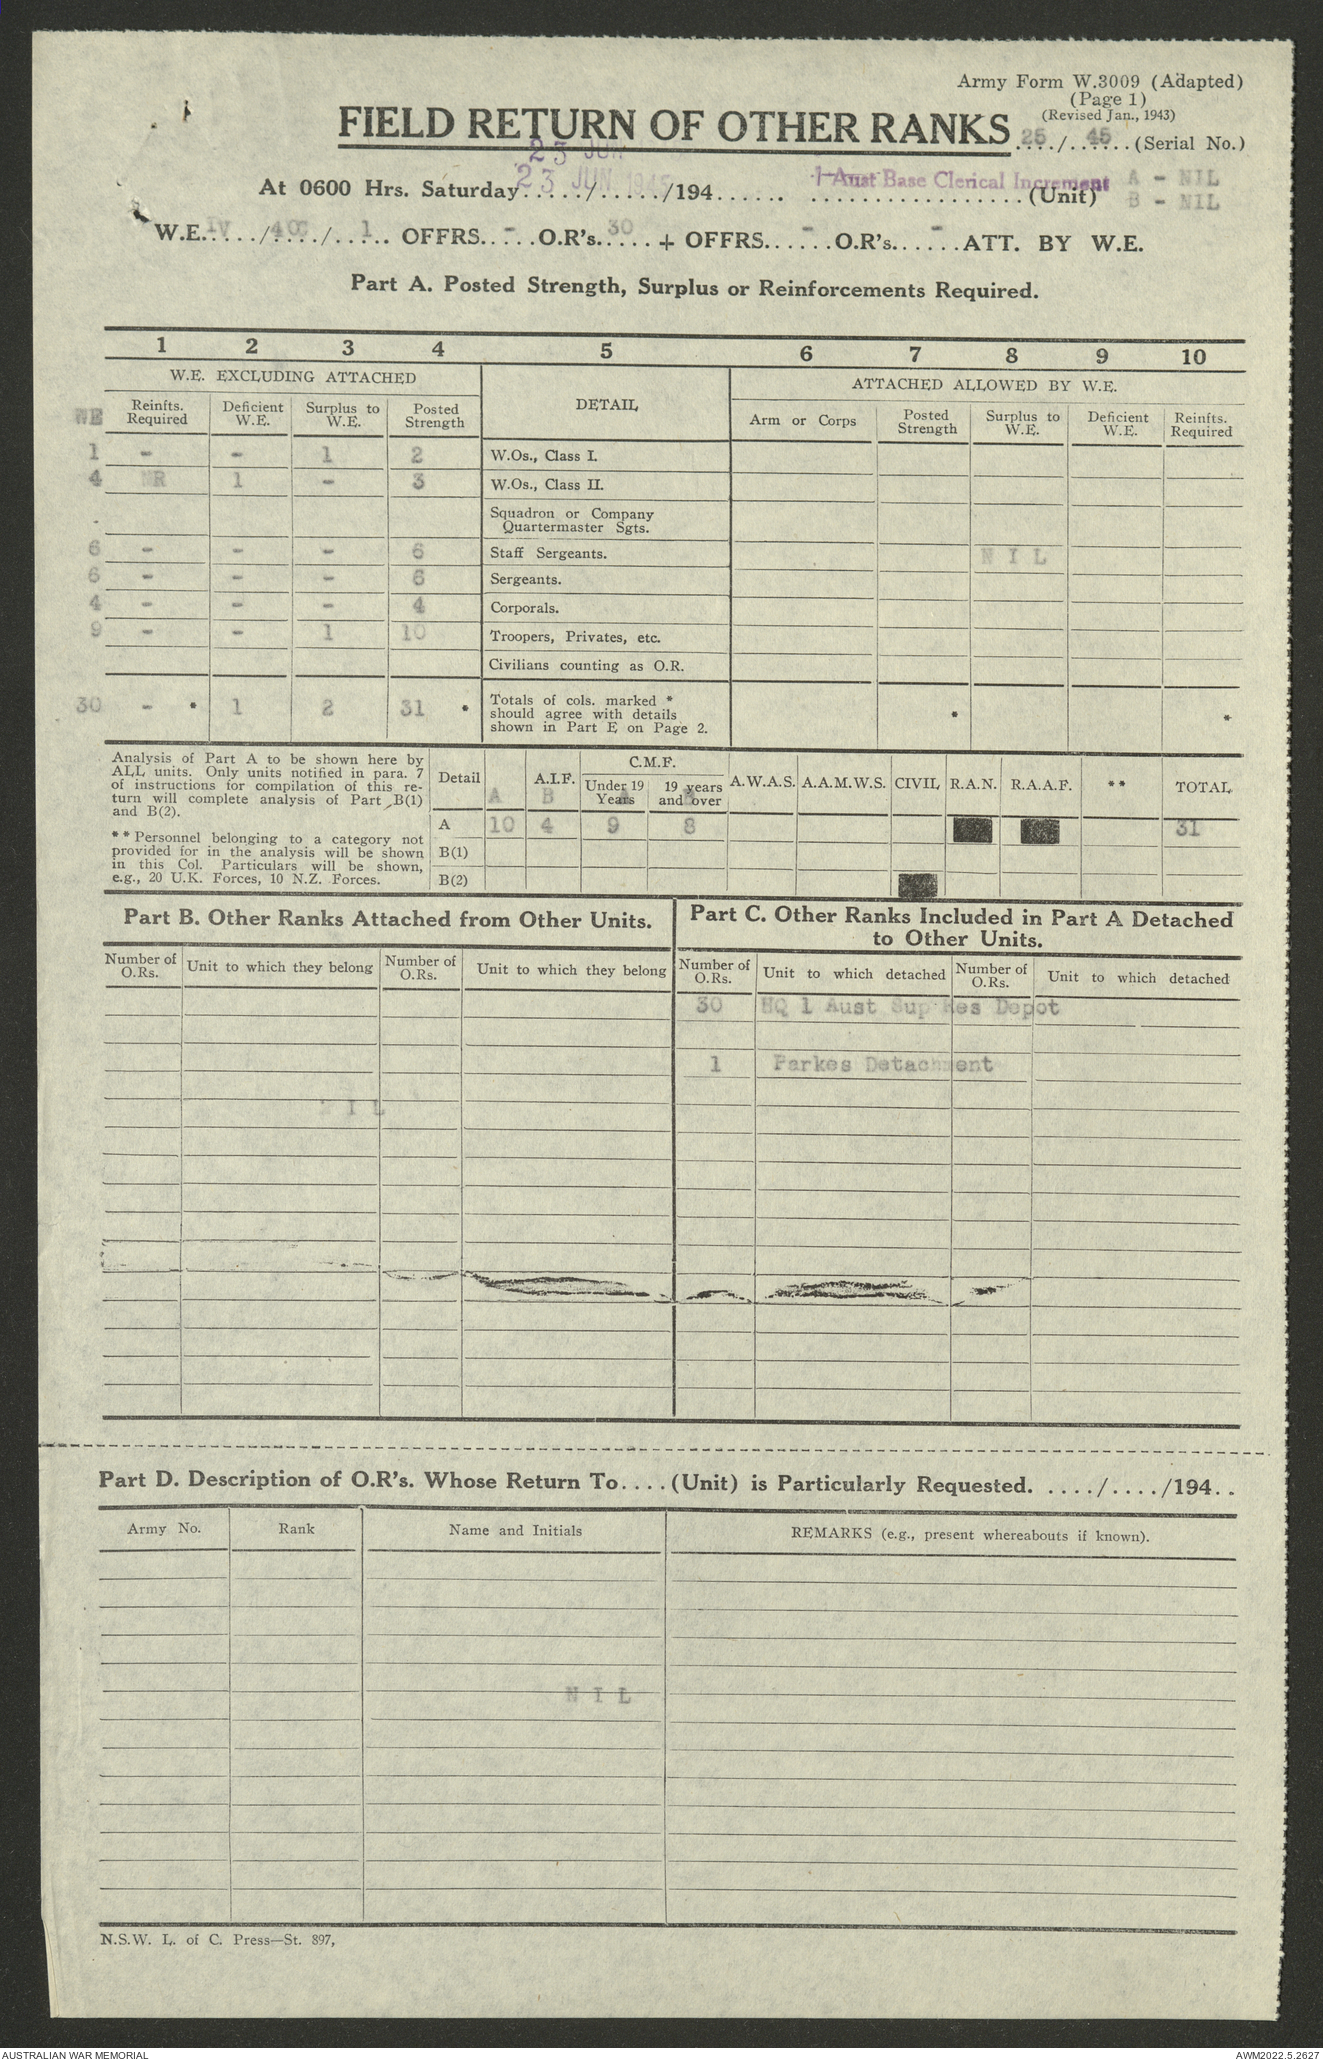 Army Form W.3009 (Adapted)
(Page 1)
(Revised Jan., 1943)
FIELD RETURN OF OTHER RANKS 25/45 (Serial No.)
23 JUN
At 0600 Hrs. Saturday 23 JUN 1945 ...../...../194...... 1 Aust Base Clerical Increment (Unit) A - NIL
B - NIL
W.E. IV / 40C / 1 .. OFFRS. - O.R's. 30 + OFFRS. - O.R's. - ATT. BY W.E.
Part A. Posted Strength, Surplus or Reinforcements Required.
1 2 3 4 5 6 7 8 9 10
W.E. EXCLUDING ATTACHED DETAIL ATTACHED ALLOWED BY W.E.
WE Reinfts. Required Deficient W.E. Surplus to W.E. Posted Strength Arm or Corps Posted Strength Surplus to W.E. Deficient W.E. Reinfts. Required
1 - - 1 2 W.Os., Class I.
4 NR 1 - 3 W.Os., Class II.
- Squadron or Company
Quartermaster Sgts.
6 - - - 6 Staff Sergeants. N I L
6 - - - 6 Sergeants.
4 - - - 4 Corporals.
9 - - 1 10 Troopers, Privates, etc.
Civilians counting as O.R.
30 - * 1 2 31 * Totals of cols. marked *
should agree with details
shown in Part E on Page 2.
* *
Analysis of Part A to be shown here by
ALL units. Only units notified in para. 7
of instructions for compilation of this re-
turn will complete analysis of Part B(1)
and B(2).
** Personnel belonging to a category not
provided for in the analysis will be shown
in this Col. Particulars will be shown,
e.g., 20 U.K. Forces, 10 N.Z. Forces.
Detail A.I.F. C.M.F. A.W.A.S. A.A.M.W.S. CIVIL R.A.N. R.A.A.F. ** TOTAL
Under 19 Years 19 years and over
A B A B
A 10 4 9 8 31
B(1)
B(2)
Part B. Other Ranks Attached from Other Units.
Number of O.Rs. Unit to which they belong Number of O.Rs. Unit to which they belong
N I L
Part C. Other Ranks Included in Part A Detached
to Other Units.
Number of O.Rs. Unit to which detached Number of O.Rs. Unit to which detached
30 HQ 1 Aust Sup Res Depot
1 Parkes Detachment
Part D. Description of O.R's. Whose Return To.... (Unit) is Particularly Requested. ..../..../194..
Army No. Rank Name and Initials REMARKS (e.g., present whereabouts if known).
N I L
N.S.W. L. of C. Press—St. 897,
AUSTRALIAN WAR MEMORIAL AWM2022.5.2627